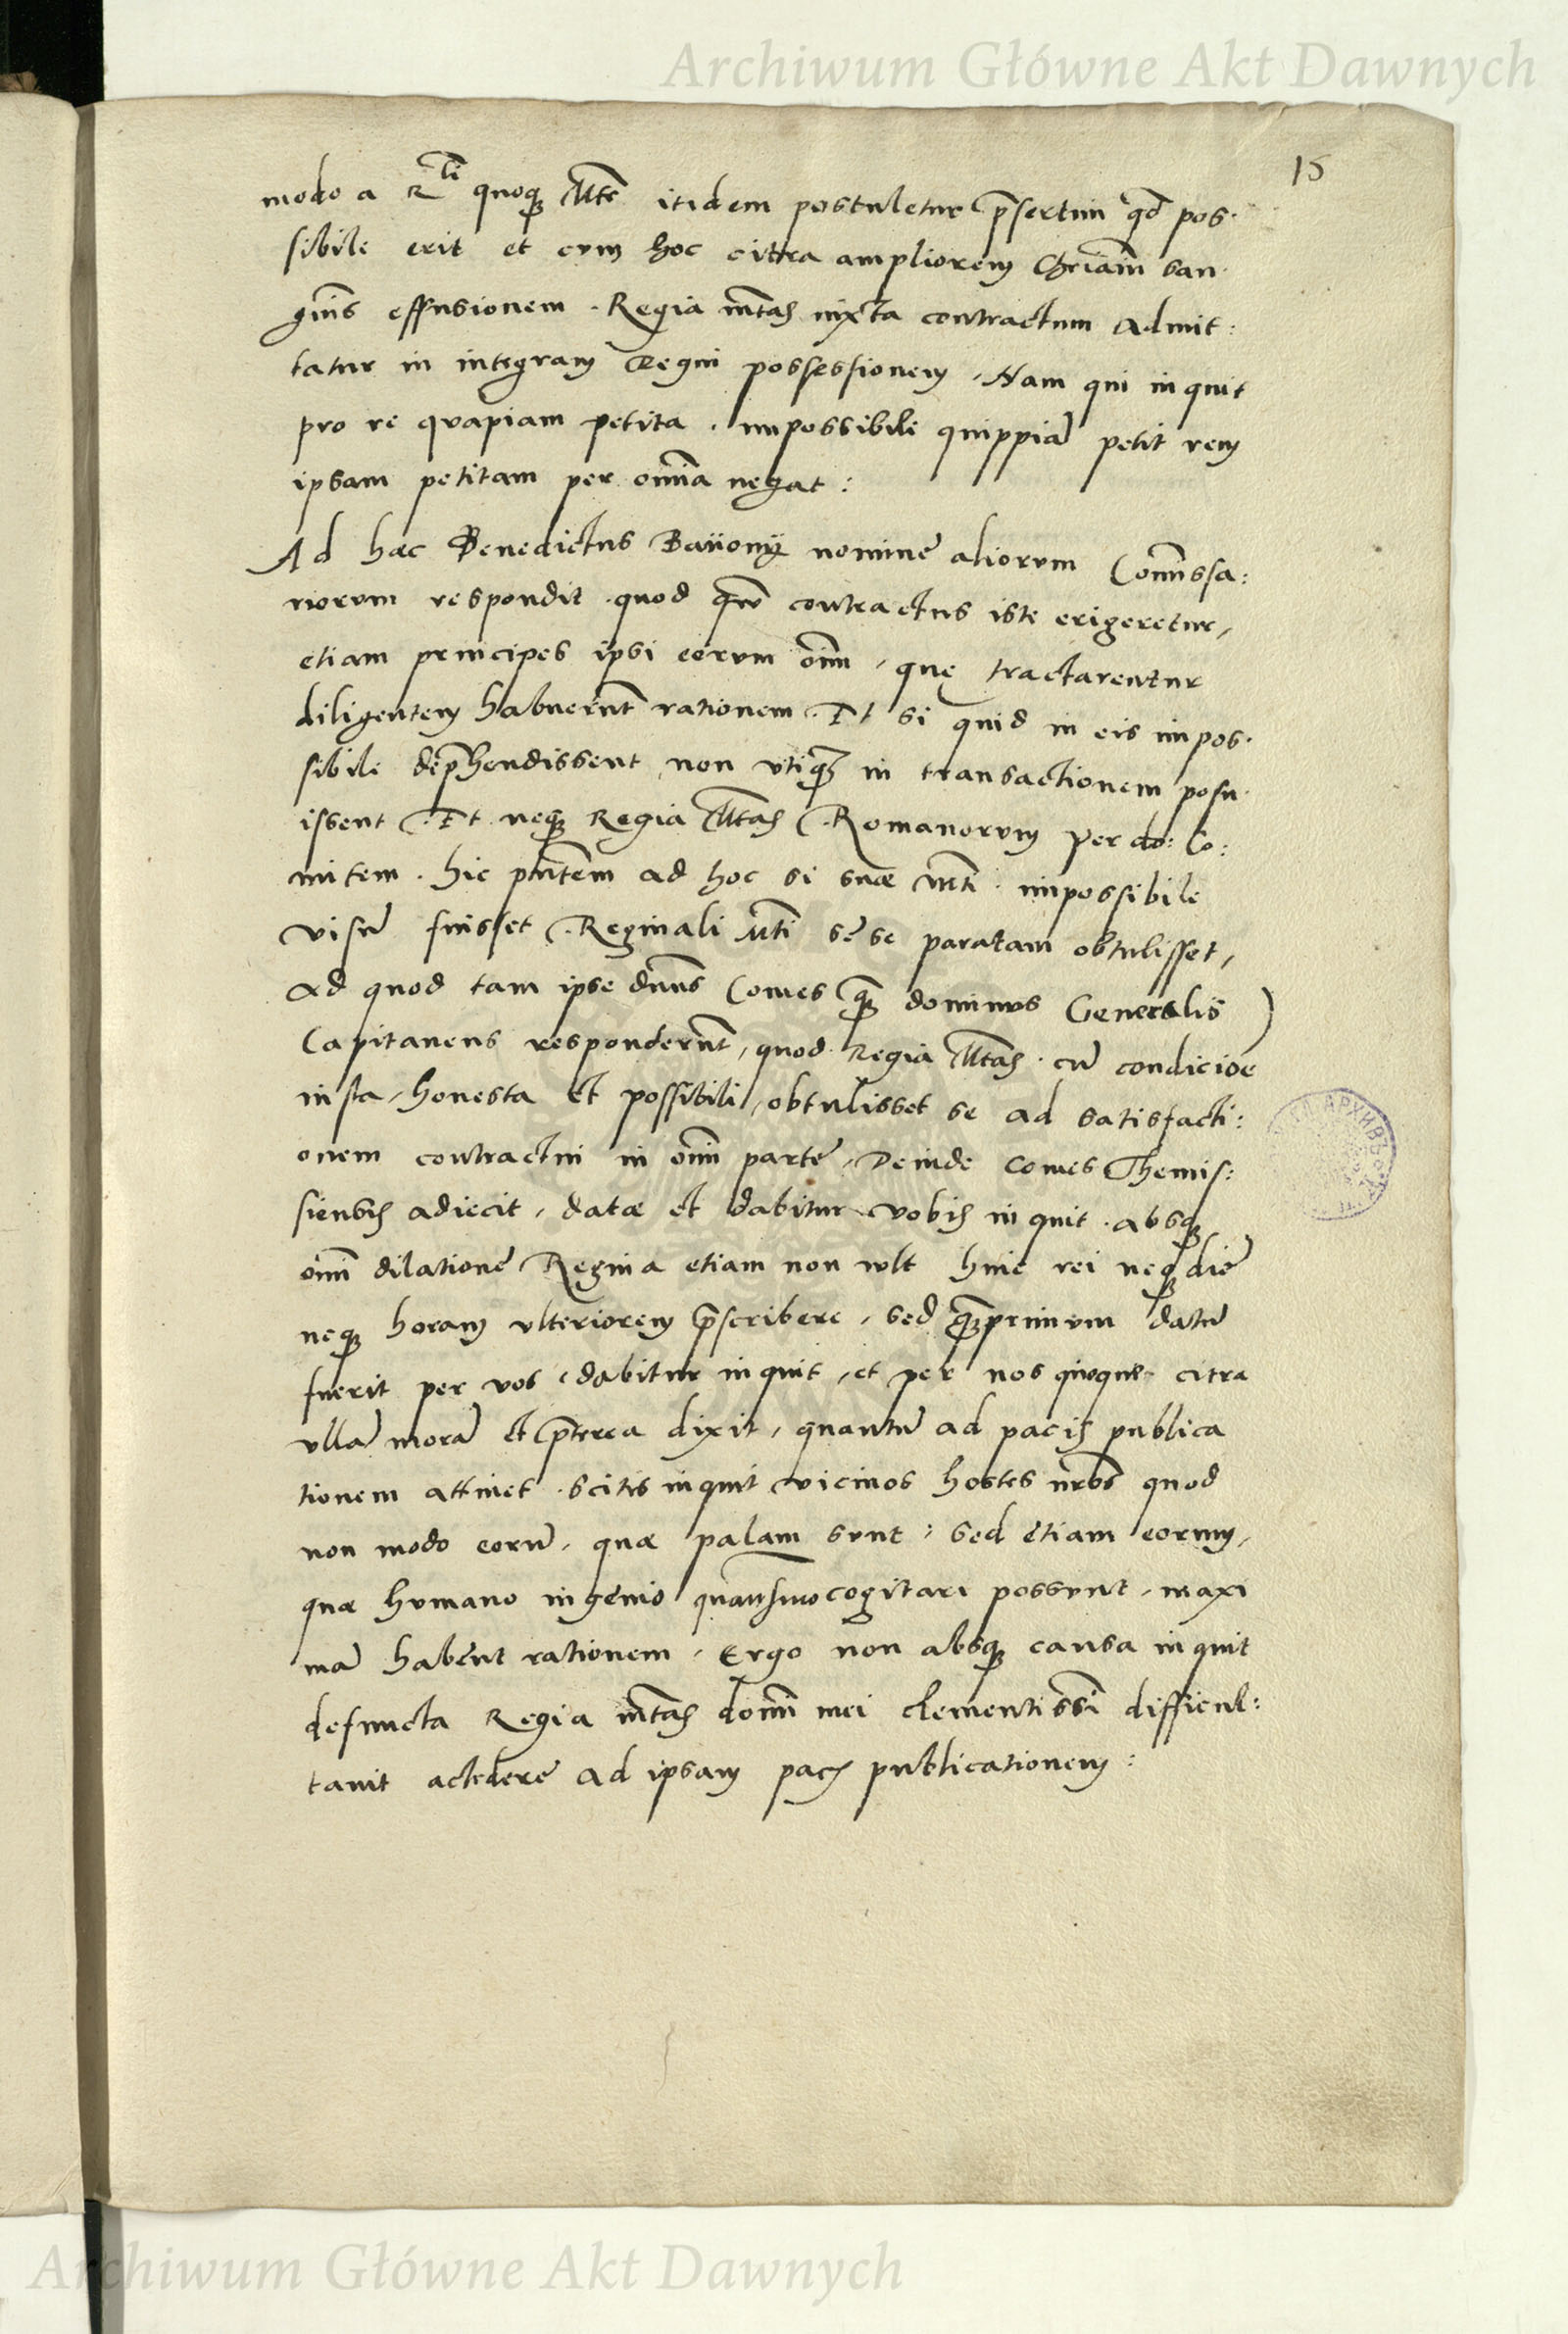 Archiwum Główne Akt Dawnych
15
modo a R^li quoq₃ Mte itidem postuletur p̄sertim qd̄ pos·
sibile erit et cum hoc citra ampliorem Chr̄iam̄ san·
guīs effusionem · Regia m̄tas iuxta contractum admit:
tatur in integram Regni possessionem, Nam qui inquit
pro re quapiam petita · impossibile quippiā petit rem
ipsam petitam per om̄ia negat :
Ad hæc Benedictus Baiiony nomine aliorum Com̄issa:
riorum respondit · quod qn̄ contractus iste erigeretur,
etiam principes ipsi eorum om̄i, quę tractarentur
diligentem habuerunt̄ rationem · Et si quid in eis impos·
sibile dep̄hendissent, non vtiq₃ in transactionem posu·
issent · Et neq₃ Regia M̄tas Romanorum per do: Co:
mitem · hic p̄ntem ad hoc si suæ m̄ti · impossibile
visū fuisset · Reginali M̄ti sese paratam obtulisset,
ad quod tam ipse dn̄us Comes q̄ dominus Generalis
Capitaneus responderūt, quod Regia M̄tas · cū condicioē
iusta, honesta et possibili, obtulisset se ad satisfacti:
onem contractui in om̄i parte, Deinde Comes Themis:
siensis adiecit, datæ et dabitur vobis inquit · absq₃
om̄i dilatione Regina etiam non vult huic rei neq₃ diē
neq₃ horam vlteriorem p̄scribere, sed q̄primum datū
fuerit per vos, dabitur inquit, et per nos quoque citra
vllā morā et p̄terea dixit, quantū ad pacis publica
tionem attinet · scitis inquit vicinos hostes nr̄os quod
non modo eorū, quæ palam sunt, sed etiam eorum,
quæ humano ingenio cogitari possunt, maxi
mā habent rationem, Ergo non absq₃ causa inquit
defuncta Regia m̄tas domī mei clementissi difficul:
tauit accedere ad ipsam pacis publicationem :
Archiwum Główne Akt Dawnych